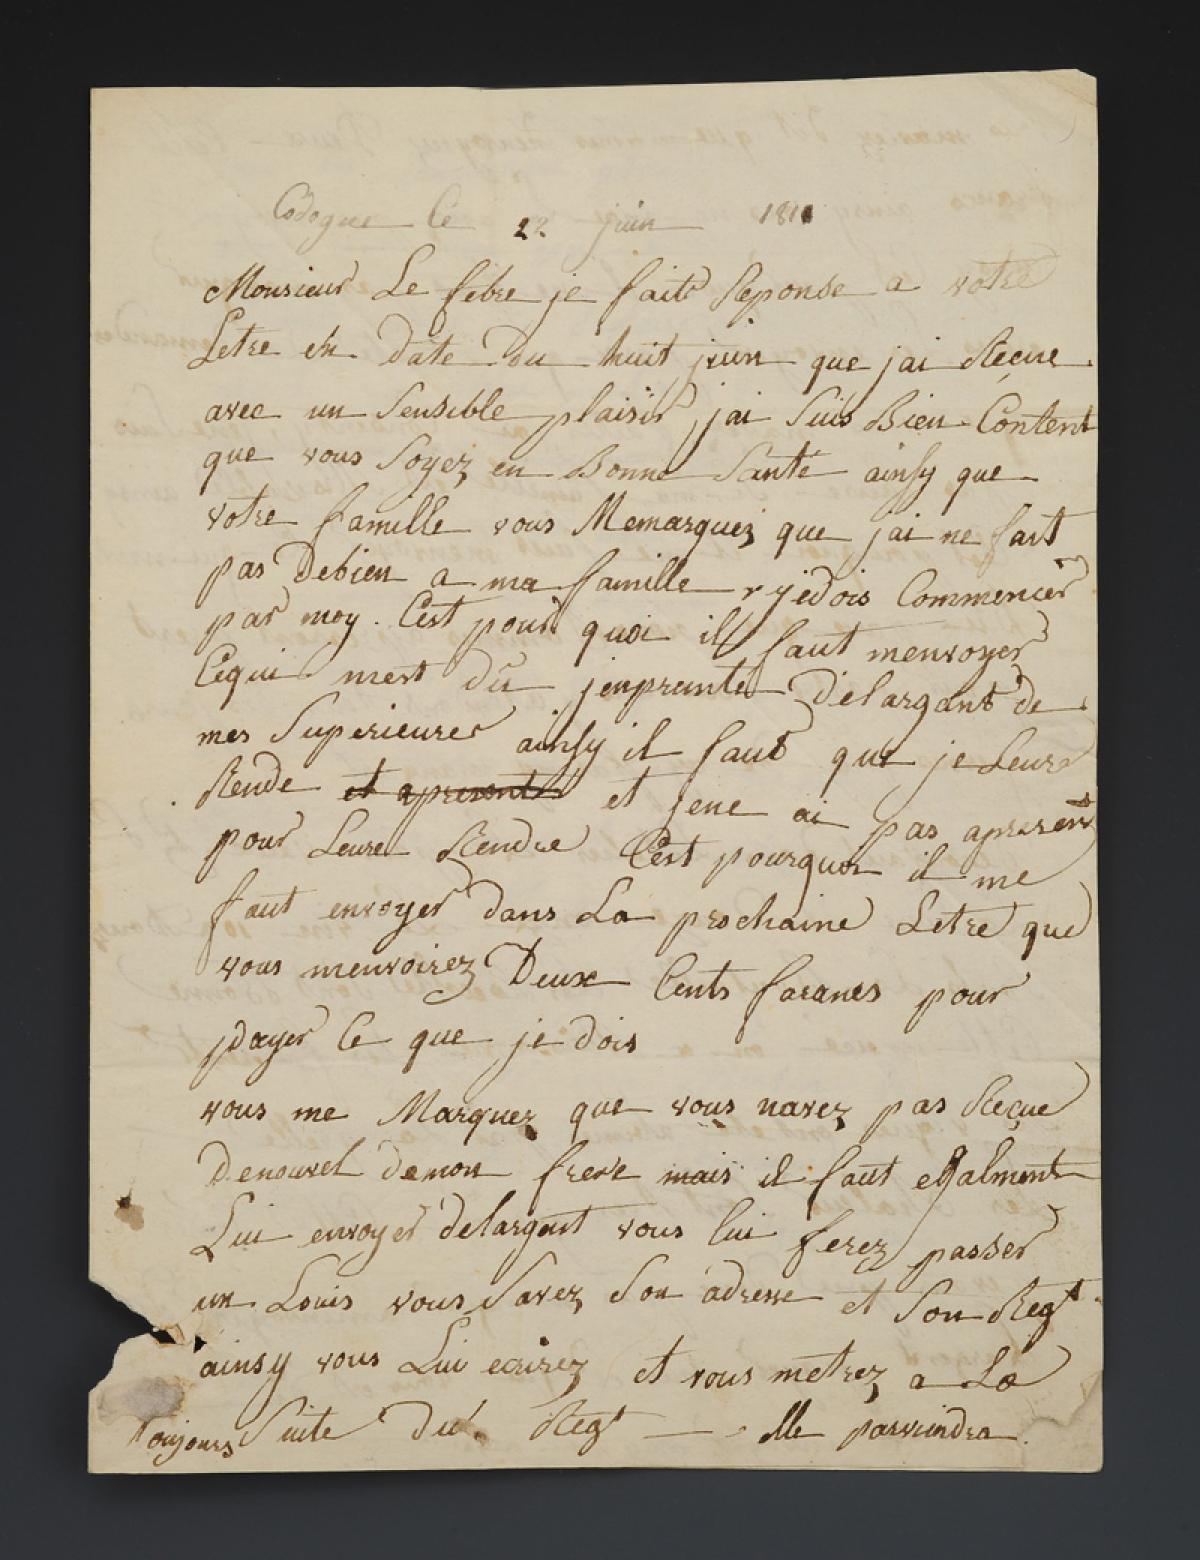 Codogne Ce 22 juin 1811
Monsieur Le febre je fait Reponse a votre
Letre en date Du huit juin que jai Reçue
avec un Sensible plaisir jai Suis Bien Content
que vous Soyez en Bonne Santé ainsy que
votre famille vous Memarquez que jai ne fait
pas Debien a ma famille jedois Commencer
par moy. Cest pour quoi il faut menvoyer
Cequi mest Dù jenprunte Delargant de
mes Superieures ainsy il faut que je Leure
Rende et apresent et jene ai pas apresent
pour Leure Rendre Cest pourquoi il me
faut envoyer dans La prochaine Letre que
vous menvoirez Deux Cents farancs pour
payer Ce que je dois
vous me Marquez que vous navez pas Reçue
Denouvel demon frere mais il faut eGalment
Lui envoyer delargent vous lui ferez passer
un Louis vous Savez Son adresse et Son Regt
ainsy vous Lui ecrirez et vous metrez a La
Suite Du Regt elle parviendra
Toujours